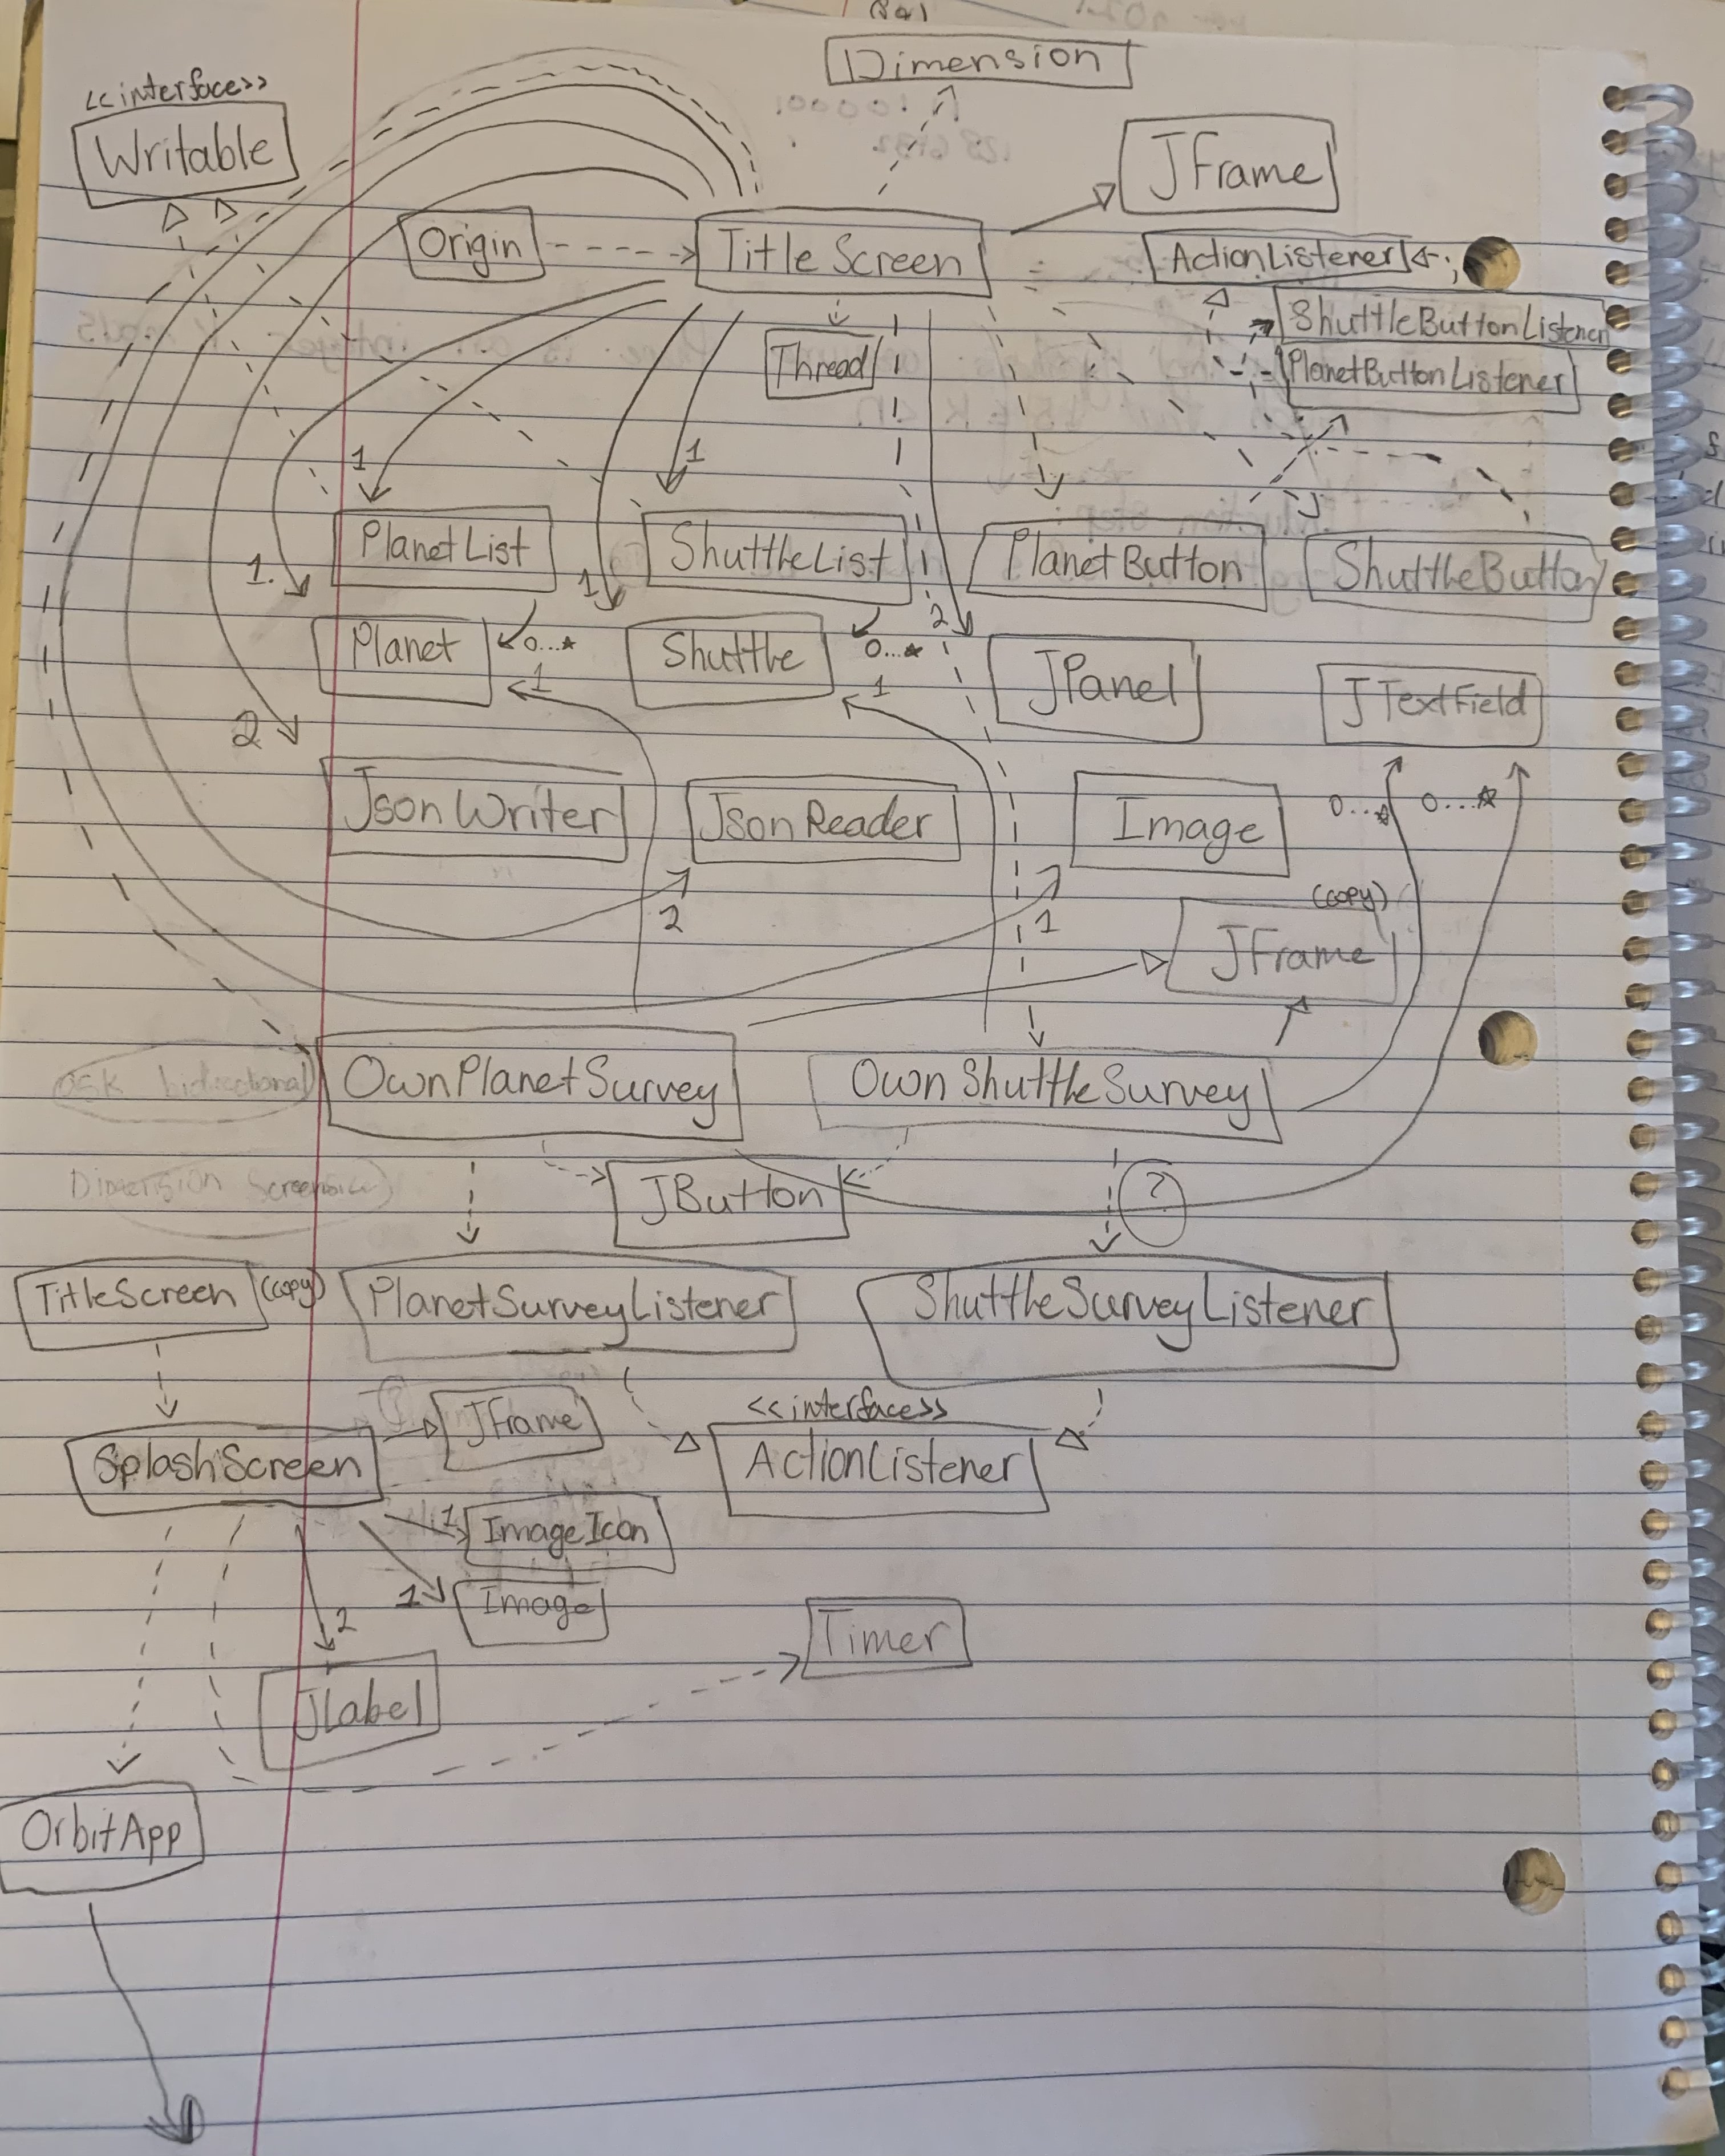 Dimension
<<interface>>
Writable
JFrame
Origin
TitleScreen
ActionListener
ShuttleButtonListener
Thread
PlanetButtonListener
1
1
PlanetList
ShuttleList
PlanetButton
ShuttleButton
1
1
2
Planet
0...*
Shuttle
0...*
JPanel
1
1
JTextField
2
JsonWriter
JsonReader
Image
0...*
0...*
2
1
(copy)
JFrame
ask bidirectional
OwnPlanetSurvey
OwnShuttleSurvey
Dimension
JButton
?
TitleScreen (copy)
PlanetSurveyListener
ShuttleSurveyListener
JFrame
<<interface>>
SplashScreen
ActionListener
1
ImageIcon
1
Image
2
Timer
JLabel
OrbitApp